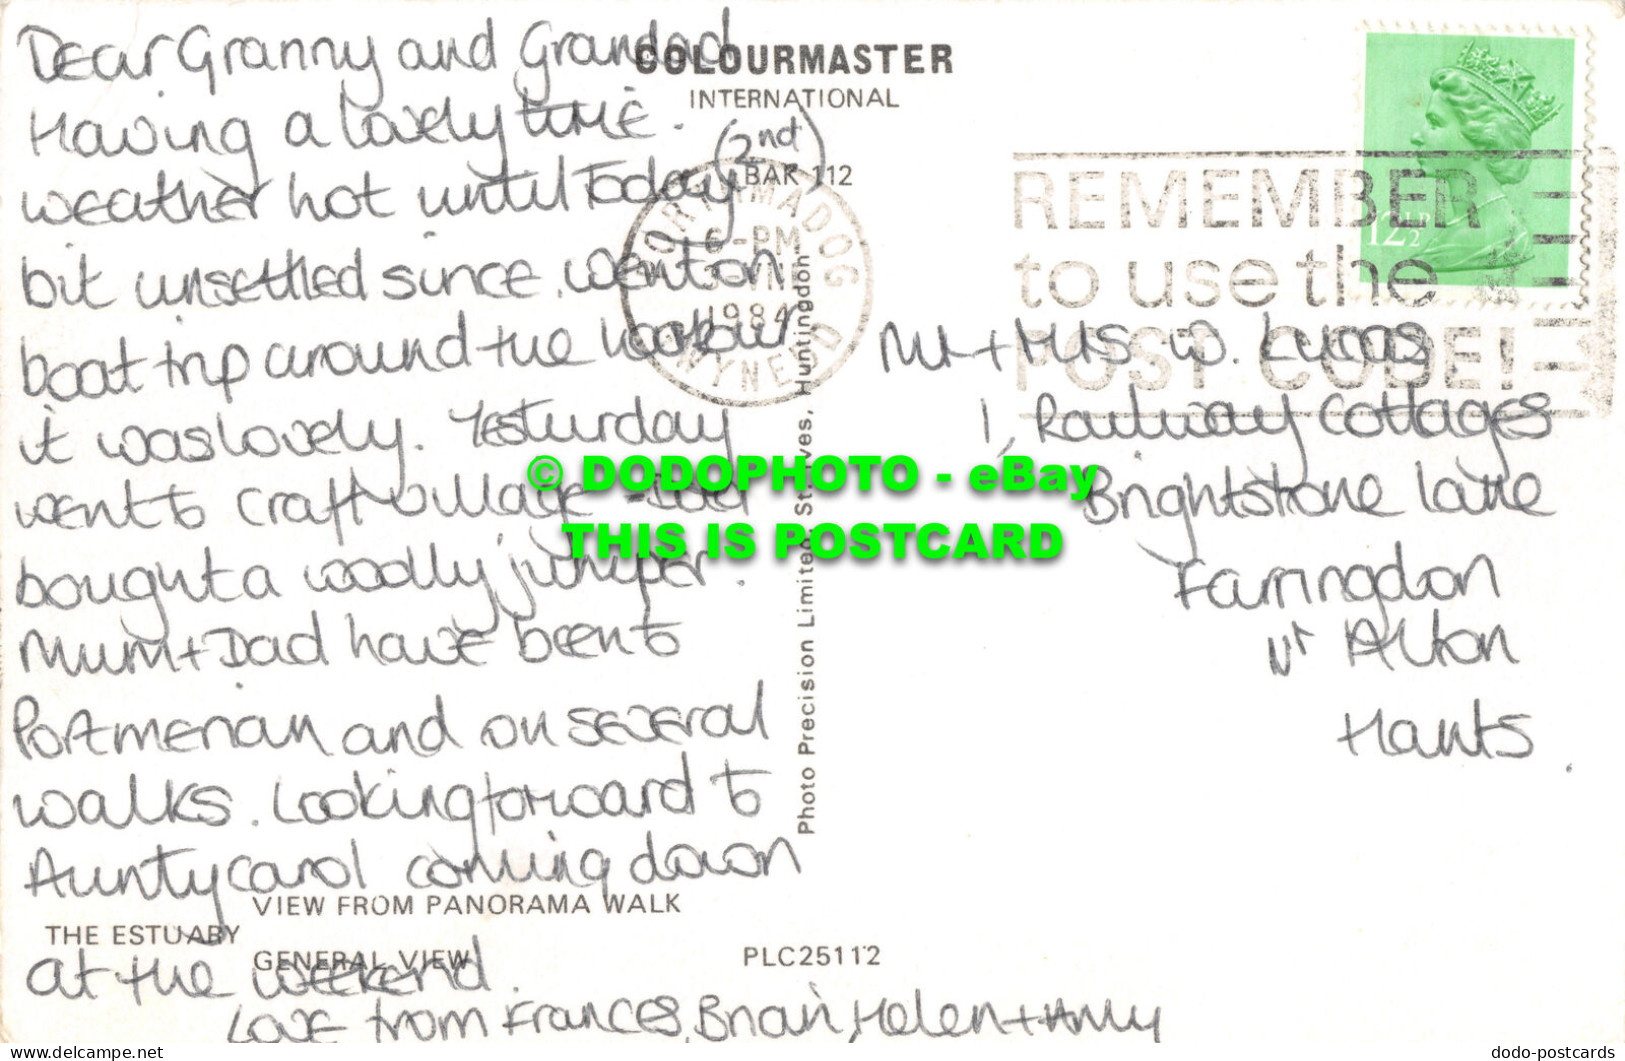 Dear Granny and Grandad
Having a lovely time.
weather hot until Today (2nd)
bit unsettled since. Went on
boat trip around the harbour
it was lovely. Yesturday
went to craft village -
bought a woolly jumper.
Mum + Dad have been to
Portmerian and on several
walks. Looking forward to
Aunty carol coming down
at the weekend.
Love from Frances, Brian, Helen + Amy
COLOURMASTER
INTERNATIONAL
BAR 112
PORTHMADOG
6-PM
1984
GWYNEDD
REMEMBER
to use the
POST CODE!
12½P
Mr + Mrs W. Lucas,
1, Railway Cottages
Brightstone Lane
Farringdon
Nr Alton
Hants.
Photo Precision Limited, St. Ives, Huntingdon
VIEW FROM PANORAMA WALK
THE ESTUARY
GENERAL VIEW
PLC25112
© DODOPHOTO - eBay
THIS IS POSTCARD
the-firm.net
dodo-postcards